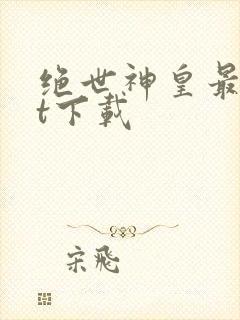 绝世神皇最
t下载
宋飛